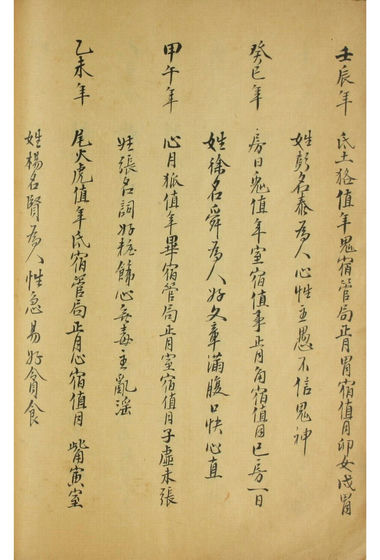 壬辰年 氐土狢值年鬼宿管局正月胃宿值月卯女戌胃
姓彭名泰為人心性主愚不信鬼神
癸巳年 房日兔值年室宿值事正月角宿值月巳房一日
姓徐名舜為人好文章滿腹口快心直
甲午年 心月狐值年畢宿管局正月室宿值月子虛未張
姓張名詞好 心無毒主亂淫
乙未年 尾火虎值年氐宿管局正月心宿值月 觜寅室
姓楊名賢為人性急易好貪食